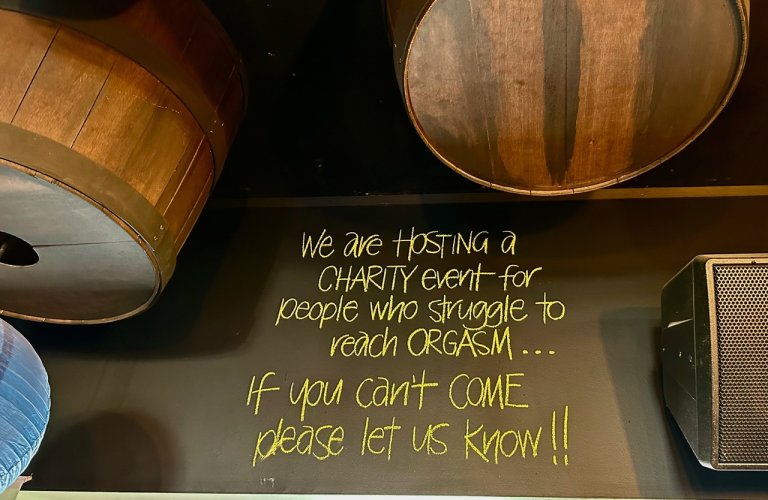 We are HOSTING a
CHARITY event for
people who struggle to
reach ORGASM...
If you can't COME
please let us know!!